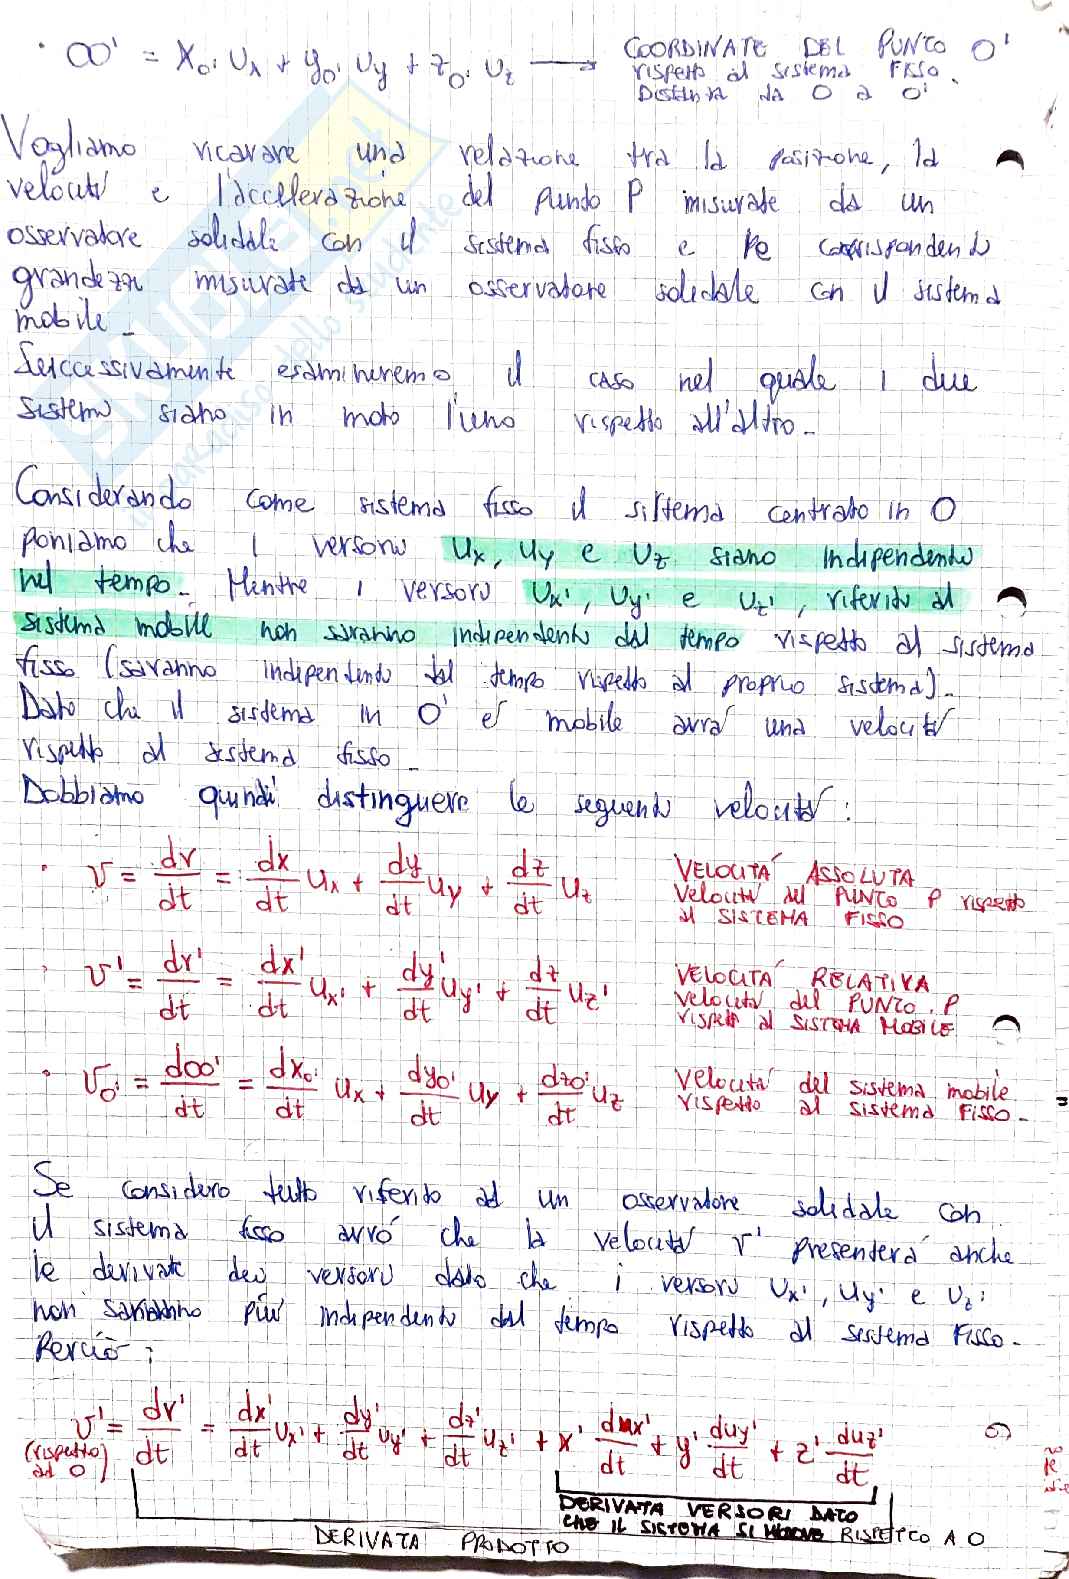 • OO' = Xo' Ux + yo' Uy + zo' Uz → COORDINATE DEL PUNTO O'
rispetto al sistema FISSO.
Distanza da O a O'
Vogliamo ricavare una relazione tra la posizione, la
velocità e l'accelerazione del punto P misurate da un
osservatore solidale con il sistema fisso e le corrispondenti
grandezze misurate da un osservatore solidale con il sistema
mobile.
Successivamente esamineremo il caso nel quale i due
sistemi siano in moto l'uno rispetto all'altro.
Considerando come sistema fisso il sistema centrato in O
poniamo che i versori Ux, Uy e Uz siano indipendenti
nel tempo. Mentre i versori Ux', Uy' e Uz', riferiti al
sistema mobile non saranno indipendenti dal tempo rispetto al sistema
fisso (saranno indipendenti dal tempo rispetto al proprio sistema).
Dato che il sistema in O' è mobile avrà una velocità
rispetto al sistema fisso.
Dobbiamo quindi distinguere le seguenti velocità:
• v = dr/dt = dx/dt Ux + dy/dt Uy + dz/dt Uz VELOCITÁ ASSOLUTA
Velocità del PUNTO P rispetto
al SISTEMA FISSO
• v' = dr'/dt = dx'/dt Ux' + dy'/dt Uy' + dz/dt Uz' VELOCITÁ RELATIVA
Velocità del PUNTO P
rispetto al SISTEMA MOBILE
• vo' = dOO'/dt = dxo'/dt Ux + dyo'/dt Uy + dzo'/dt Uz Velocità del sistema mobile
rispetto al sistema FISSO.
Se considero tutto riferito ad un osservatore solidale con
il sistema fisso avrò che la velocità v' presenterà anche
le derivate dei versori dato che i versori Ux', Uy' e Uz'
non saranno più indipendenti dal tempo rispetto al sistema FISSO.
Perciò:
v' = dr'/dt = dx'/dt Ux' + dy'/dt Uy' + dz'/dt Uz' + x' dux'/dt + y' duy'/dt + z' duz'/dt
(rispetto
ad O)
DERIVATA VERSORI DATO
CHE IL SISTEMA SI MUOVE RISPETTO A O
DERIVATA PRODOTTO